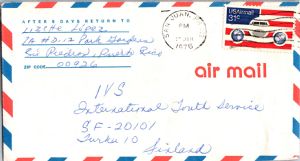 AFTER 5 DAYS RETURN TO
Lizette López
2A HD-12 Park Gardens
Río Piedras, Puerto Rico
ZIP CODE 00926
SAN JUAN,
PM
1976
USAirmail
31c
air mail
IYS
International Youth Service
SF-20101
Turku 10
Finland